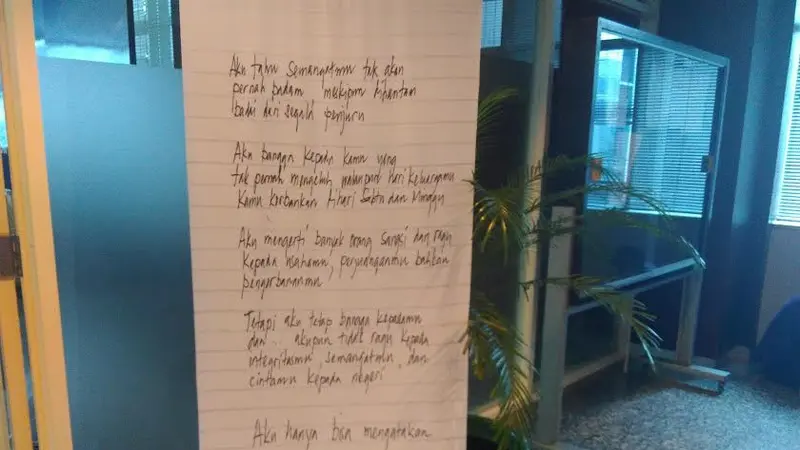 Aku tahu semangatmu tak akan
pernah padam meskipun dihantam
badai dari segala penjuru
Aku bangga kepada kamu yang
tak pernah mengeluh walaupun hari keluargamu
kamu korbankan dihari Sabtu dan Minggu
Aku mengerti banyak orang sangsi dan ragu
kepada usahamu, perjuanganmu bahkan
pengorbananmu
Tetapi aku tetap bangga kepadamu
dan .. akupun tidak ragu kepada
integritasmu, semangatmu, dan
cintamu kepada negeri
Aku hanya bisa mengatakan